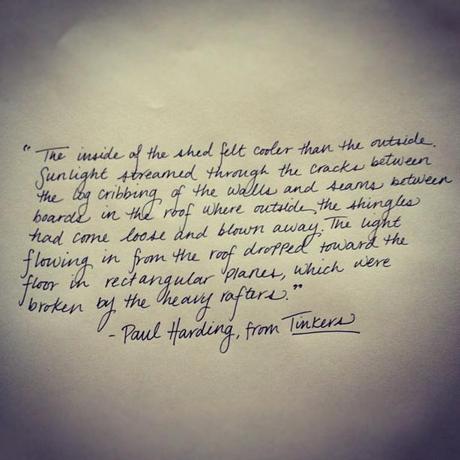 "The inside of the shed felt cooler than the outside.
Sunlight streamed through the cracks between
the log cribbing of the walls and seams between
boards in the roof where outside, the shingles
had come loose and blown away. The light
flowing in from the roof dropped toward the
floor in rectangular planes, which were
broken by the heavy rafters."
- Paul Harding, from Tinkers